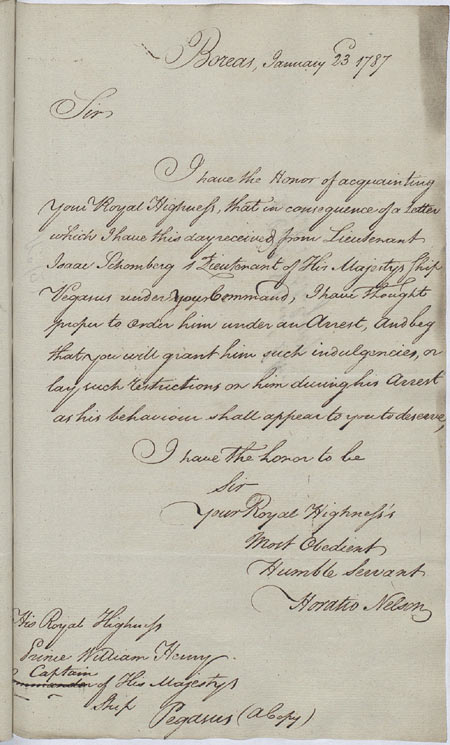 Boreas, January 23 1787
Sir
I have the Honor of acquainting
Your Royal Highness, that in consequence of a Letter
which I have this day received from Lieutenant
Isaac Schomberg 1 Lieutenant of His Majestys Ship
Pegasus under your Command, I have thought
proper to order him under an Arrest, and beg
that you will grant him such indulgencies, or
lay, such restrictions on him during his Arrest
as his behaviour shall appear to you to deserve,
I have the honor to be
Sir
Your Royal Highness's
Most Obedient
Humble Servant
Horatio Nelson
His Royal Highness
Prince William Henry.
Captain
Commander of His Majestys
Ship Pegasus (a Copy)